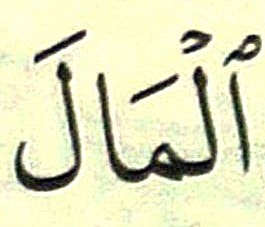 ٱلْمَالَ